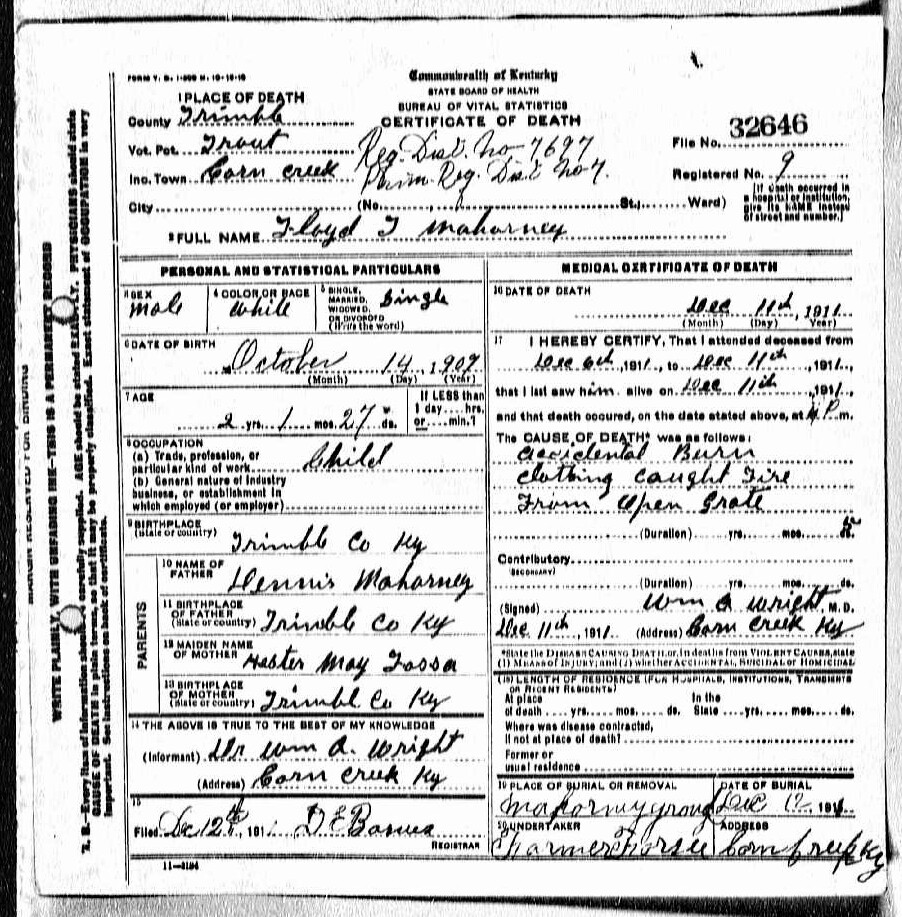 FORM V. S. 1-500 M. 10-18-10
Commonwealth of Kentucky
STATE BOARD OF HEALTH
BUREAU OF VITAL STATISTICS
CERTIFICATE OF DEATH
1 PLACE OF DEATH
County Trimble
Vot. Pct. Trout
Inc. Town Corn Creek
Reg. Dist. No 7697
Prim. Reg. Dist No 7.
File No. 32646
Registered No. 9
City (No. St.; Ward)
[If death occurred in a hospital or institution, give its NAME instead of street and number.]
2 FULL NAME Floyd T Mahorney
PERSONAL AND STATISTICAL PARTICULARS
3 SEX
Male
4 COLOR OR RACE
White
5 SINGLE, MARRIED, WIDOWED, OR DIVORCED (Write the word)
Single
6 DATE OF BIRTH
October 14, 1909
(Month) (Day) (Year)
7 AGE
2 yrs. 1 mos. 27 ds.
If LESS than 1 day....hrs. or....min.?
8 OCCUPATION
(a) Trade, profession, or particular kind of work Child
(b) General nature of industry business, or establishment in which employed (or employer)
9 BIRTHPLACE
(State or country)
Trimble Co Ky
PARENTS
10 NAME OF FATHER
Dennis Mahorney
11 BIRTHPLACE OF FATHER
(State or country) Trimble Co Ky
12 MAIDEN NAME OF MOTHER
Hester May
13 BIRTHPLACE OF MOTHER
(State or country) Trimble Co Ky
14 THE ABOVE IS TRUE TO THE BEST OF MY KNOWLEDGE
(Informant) Dr Wm A. Wright
(Address) Corn Creek Ky
15
Filed Dec 12th, 1911
REGISTRAR
11-3184
MEDICAL CERTIFICATE OF DEATH
16 DATE OF DEATH
Dec 11th, 1911
(Month) (Day) (Year)
17 I HEREBY CERTIFY, That I attended deceased from
Dec 6th, 1911, to Dec 11th, 1911,
that I last saw him alive on Dec 11th, 1911,
and that death occured, on the date stated above, at P m.
The CAUSE OF DEATH* was as follows:
Accidental Burn
Clothing Caught Fire
From Open Grate
(Duration) yrs. mos. ds.
Contributory
(SECONDARY)
(Duration) yrs. mos. ds.
(Signed) Wm A Wright, M.D.
Dec 11th, 1911 (Address) Corn Creek Ky
*State the DISEASE CAUSING DEATH, or, in deaths from VIOLENT CAUSES, state
(1) MEANS OF INJURY; and (2) whether ACCIDENTAL, SUICIDAL or HOMICIDAL
(18) LENGTH OF RESIDENCE (FOR HOSPITALS, INSTITUTIONS, TRANSIENTS
OR RECENT RESIDENTS)
At place of death yrs. mos. ds. In the State yrs. mos. ds.
Where was disease contracted,
If not at place of death?
Former or
usual residence
19 PLACE OF BURIAL OR REMOVAL
DATE OF BURIAL
Dec 12 1911
20 UNDERTAKER
ADDRESS
Corn Creek Ky
MARGIN RESERVED FOR BINDING
WRITE PLAINLY, WITH UNFADING INK—THIS IS A PERMANENT RECORD
N. B.—Every item of information should be carefully supplied. AGE should be stated EXACTLY. PHYSICIANS should state
CAUSE OF DEATH in plain terms, so that it may be properly classified. Exact statement of OCCUPATION is very
important. See instructions on back of certificate.